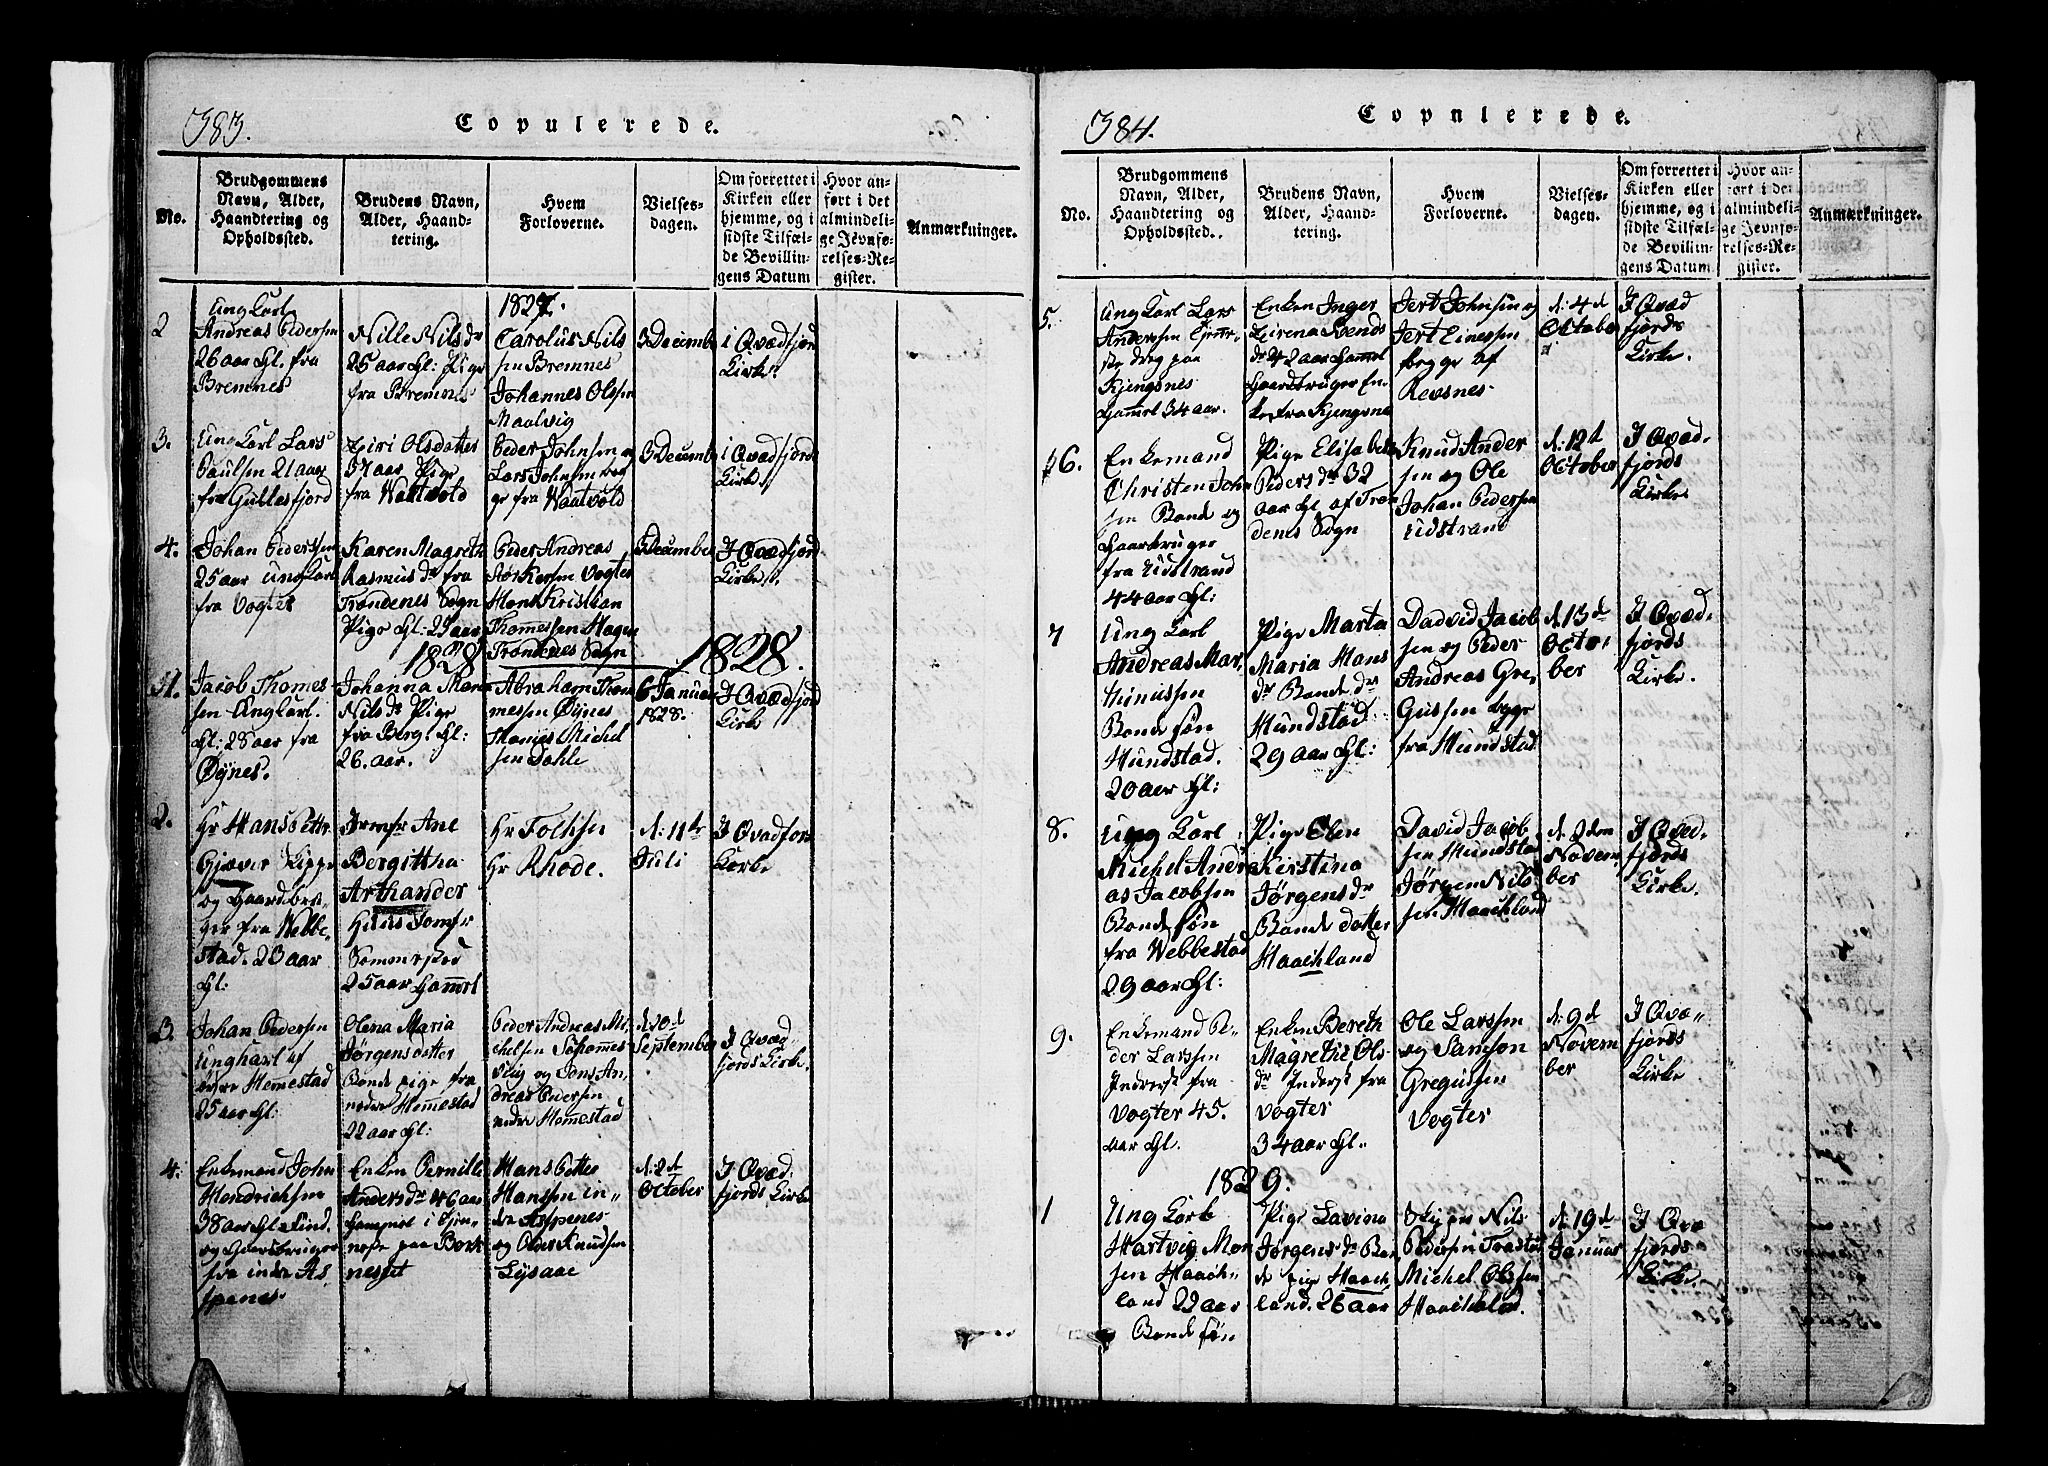 383.
Copulerede.
No.
Brudgommens
Navn, Alder,
Haandtering og
Opholdssted.
Brudens Navn,
Alder, Haand-
tering.
Hvem
Forloverne.
Vielses-
dagen.
Om forrettet i
Kirken eller
hjemme, og i
sidste Tilfæl-
de Bevillin-
gens Datum
Hvor an-
ført i det
almindeli-
ge Jevnfø-
relses-Re-
gister.
Anmærkninger.
1827.
2
Ung Carl
Andreas Pedersen
26 aar Gl. fra
Bremnes
Nille Nils dr
25 aar Gl: Pige
fra Bremnes
Carolus Nils
sen Bremnes
Johannes Olssen
Maalvig
3 Decembr
i Qvædfjord
Kirke.
3.
Ung Carl Lars
Paulsen 21 aar
fra Gullesfjord
Ziri Olsdatter
37 aar Pige
fra Waatvold
Peder Johnsen og
Lars Johnsen beg
ge fra Waatvold
3 Decembr
i Qvædfjords
Kirke.
4.
Johan Pedersen
25 aar ung Carl
fra Vogter
Karen Magreth
Rasmus dr fra
Trondenes Sogn
Pige Gl: 29 aar
Peder Andreas
Vogter
Kristian
Thommessen Hagen
Trondenes Sogn
Decembr
I Qvædfjord
Kirke.
1828
1828.
1.
Jacob Thomes
sen Ung Carl.
Gl: 28 aar fra
Øynes.
Johanna Mari
Nils dr Pige
fra Berg Gl:
26. aar.
Abraham Thom
messen Øynes
Thomes Michel
sen Dahle
6 Januar
1828.
I Qvædfjord
Kirke
2.
Hr Hans Petter
Gjæver
og Gaardbru-
ger fra Webbe-
stad. 23 aar
Gl:
Jomfr Ane
Bergittha
Arthander
Jomfr
25 aar Gammel
Hr Tolksen
Hr Rhode.
d: 11te
Juli
I Qvædfjord
Kirke
3.
Johan Pedersen
ungkarl af
øvre Hemestad
25 aar Gl:
Olena Maria
Jørgensdatter
Bonde pige fra
nedre Hemmestad
22 aar Gl:
Peder Andreas Mi-
chelsen
vig og Jens An-
dreas Pedersen
nedre Hemestad
d. 20d
September
I Qvæd-
fjords Kirke.
4.
Enkemand John
Hendrichsen
38 aar Gl
og Gaardbruger
fra indre As-
penes.
Enken Pernille
Anders dr 46 aar
Gammel i Tjen-
neste paa Bork
nesset
Hans Petter
Hanssen in-
dre Aspenes
og Knudsen
Lysaae
d: 2d
October
I Qvæd-
fjords Kirke
384.
Copulerede.
No.
Brudgommens
Navn, Alder,
Haandtering og
Opholdssted.
Brudens Navn,
Alder, Haand-
tering.
Hvem
Forloverne.
Vielses-
dagen.
Om forrettet i
Kirken eller
hjemme, og i
sidste Tilfæl-
de Bevillin-
gens Datum
Hvor an-
ført i det
almindeli-
ge Jevnfø-
relses-Re-
gister.
Anmærkninger.
5.
Ung Carl Lars
Anderssen Tjenne-
ste dreng paa
Kjengsnes
Gammel 34 aar.
Enken Inger
Zirena Svends
dr 42 aar Gammel
Gaardbruger En-
ke fra Kjengsnes
Jert Johnsen og
Jert Einessen
begge af
Revsnes
d: 4d
October
I Qvæd
fjords
Kirke.
6.
Enkemand
Christen John
sen Bonde og
Gaarbruger
fra Udstrand
44 aar Gl:
Pige Elisabet
Peders dr 32
aar Gl af Tron
denes Sogn
Knud Ander
sen og Ole
Johan Pedersen
Udstrand
d: 12d
October
I Qvæd-
fjords
Kirke
7
Ung Carl
Andreas Mar-
thinussen
Bonde søn
Hundstad.
20 aar Gl:
Pige Marta
Maria Hans
dr Bonde dr
Hundstad
29 aar Gl:
Dadvid Jacob
sen og Peder
Andreas Gre-
gussen begge
fra Hundstad
d: 13d
Octo-
ber
I Qvæd-
fjords
Kirke.
8.
Ung Carl
Michel Andre
as Jacobsen
Bonde søn
fra Webbestad
29 aar Gl:
Pige Elen
Kirstina
Jørgens dr
Bonde datter
Haachland
David Jacob
sen Hundstad
Jørgen Nils
sen Haachland
d. 2den
Novem
ber
I Qvæd-
fjords
Kirke.
9.
Enkemand Pe-
der Larssen
Inderst fra
Vogter 45.
aar Gl.
Enken Bereth
Magrethe Ols-
dr Inderst fra
Vogter
34 aar Gl.
Ole Larssen
og Samson
Gregussen
Vogter
d: 9d
Novem
ber
I Qvæ-
fjords
Kirke
1829.
1
Ung Carl
Hartvig Mor
sen Haach-
land 29 aar
Bonde søn
Pige Lavina
Jørgens dr Bon
de pige Haach
land. 26 aar
Nils
Pedersen Trastad
Michel Olssen
Haachland.
d. 19d
Januar
I Qvæ
fjords
Kirke.